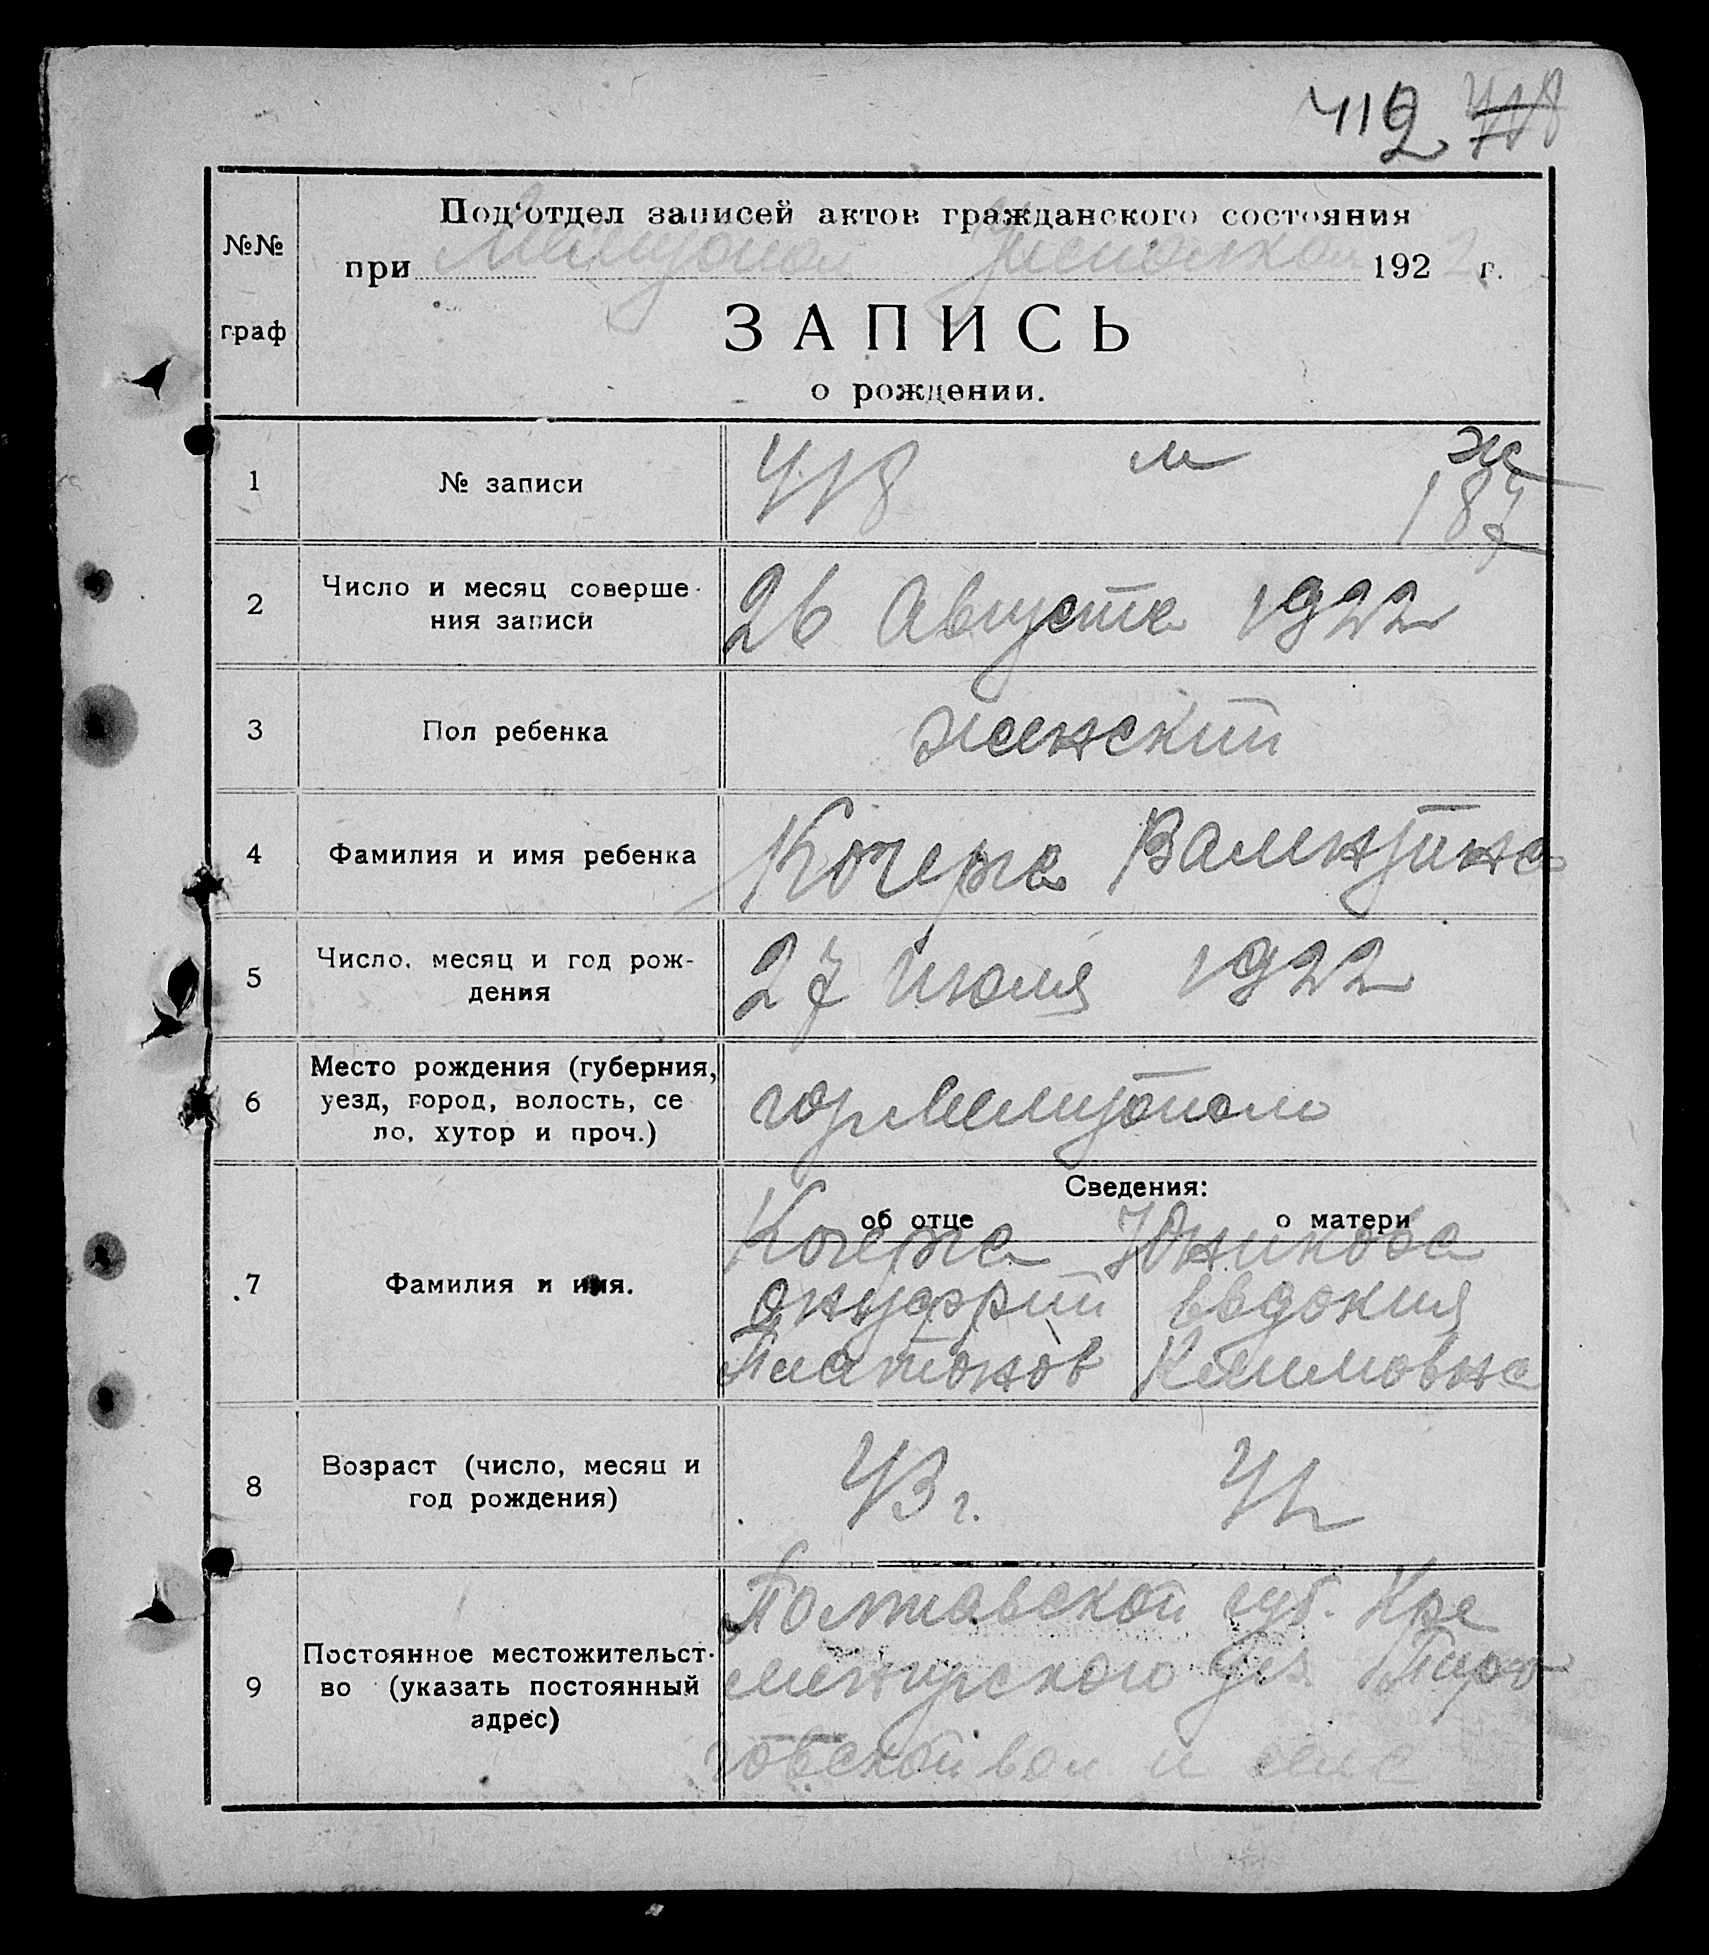 412 418
Под‘отдел записей актов гражданского состояния
№№
при Мелитопол Исполком 1922 г.
граф
ЗАПИСЬ
о рождении.
1 № записи 418 м ж
187
2 Число и месяц соверше-
ния записи 26 Августа 1922
3 Пол ребенка женский
4 Фамилия и имя ребенка Кочерга Валентина
5 Число, месяц и год рож-
дения 27 июля 1922
6 Место рождения (губерния,
уезд, город, волость, се
ло, хутор и проч.) гор Мелитополь
Сведения:
об отце о матери
7 Фамилия и имя.
Кочерга
Онуфрий Евдокия
Платонов Климовна
8 Возраст (число, месяц и
год рождения) 43 г. 42
9 Постоянное местожительст-
во (указать постоянный
адрес)
Полтавской губ. Кре
менчугского уез.
вол и села